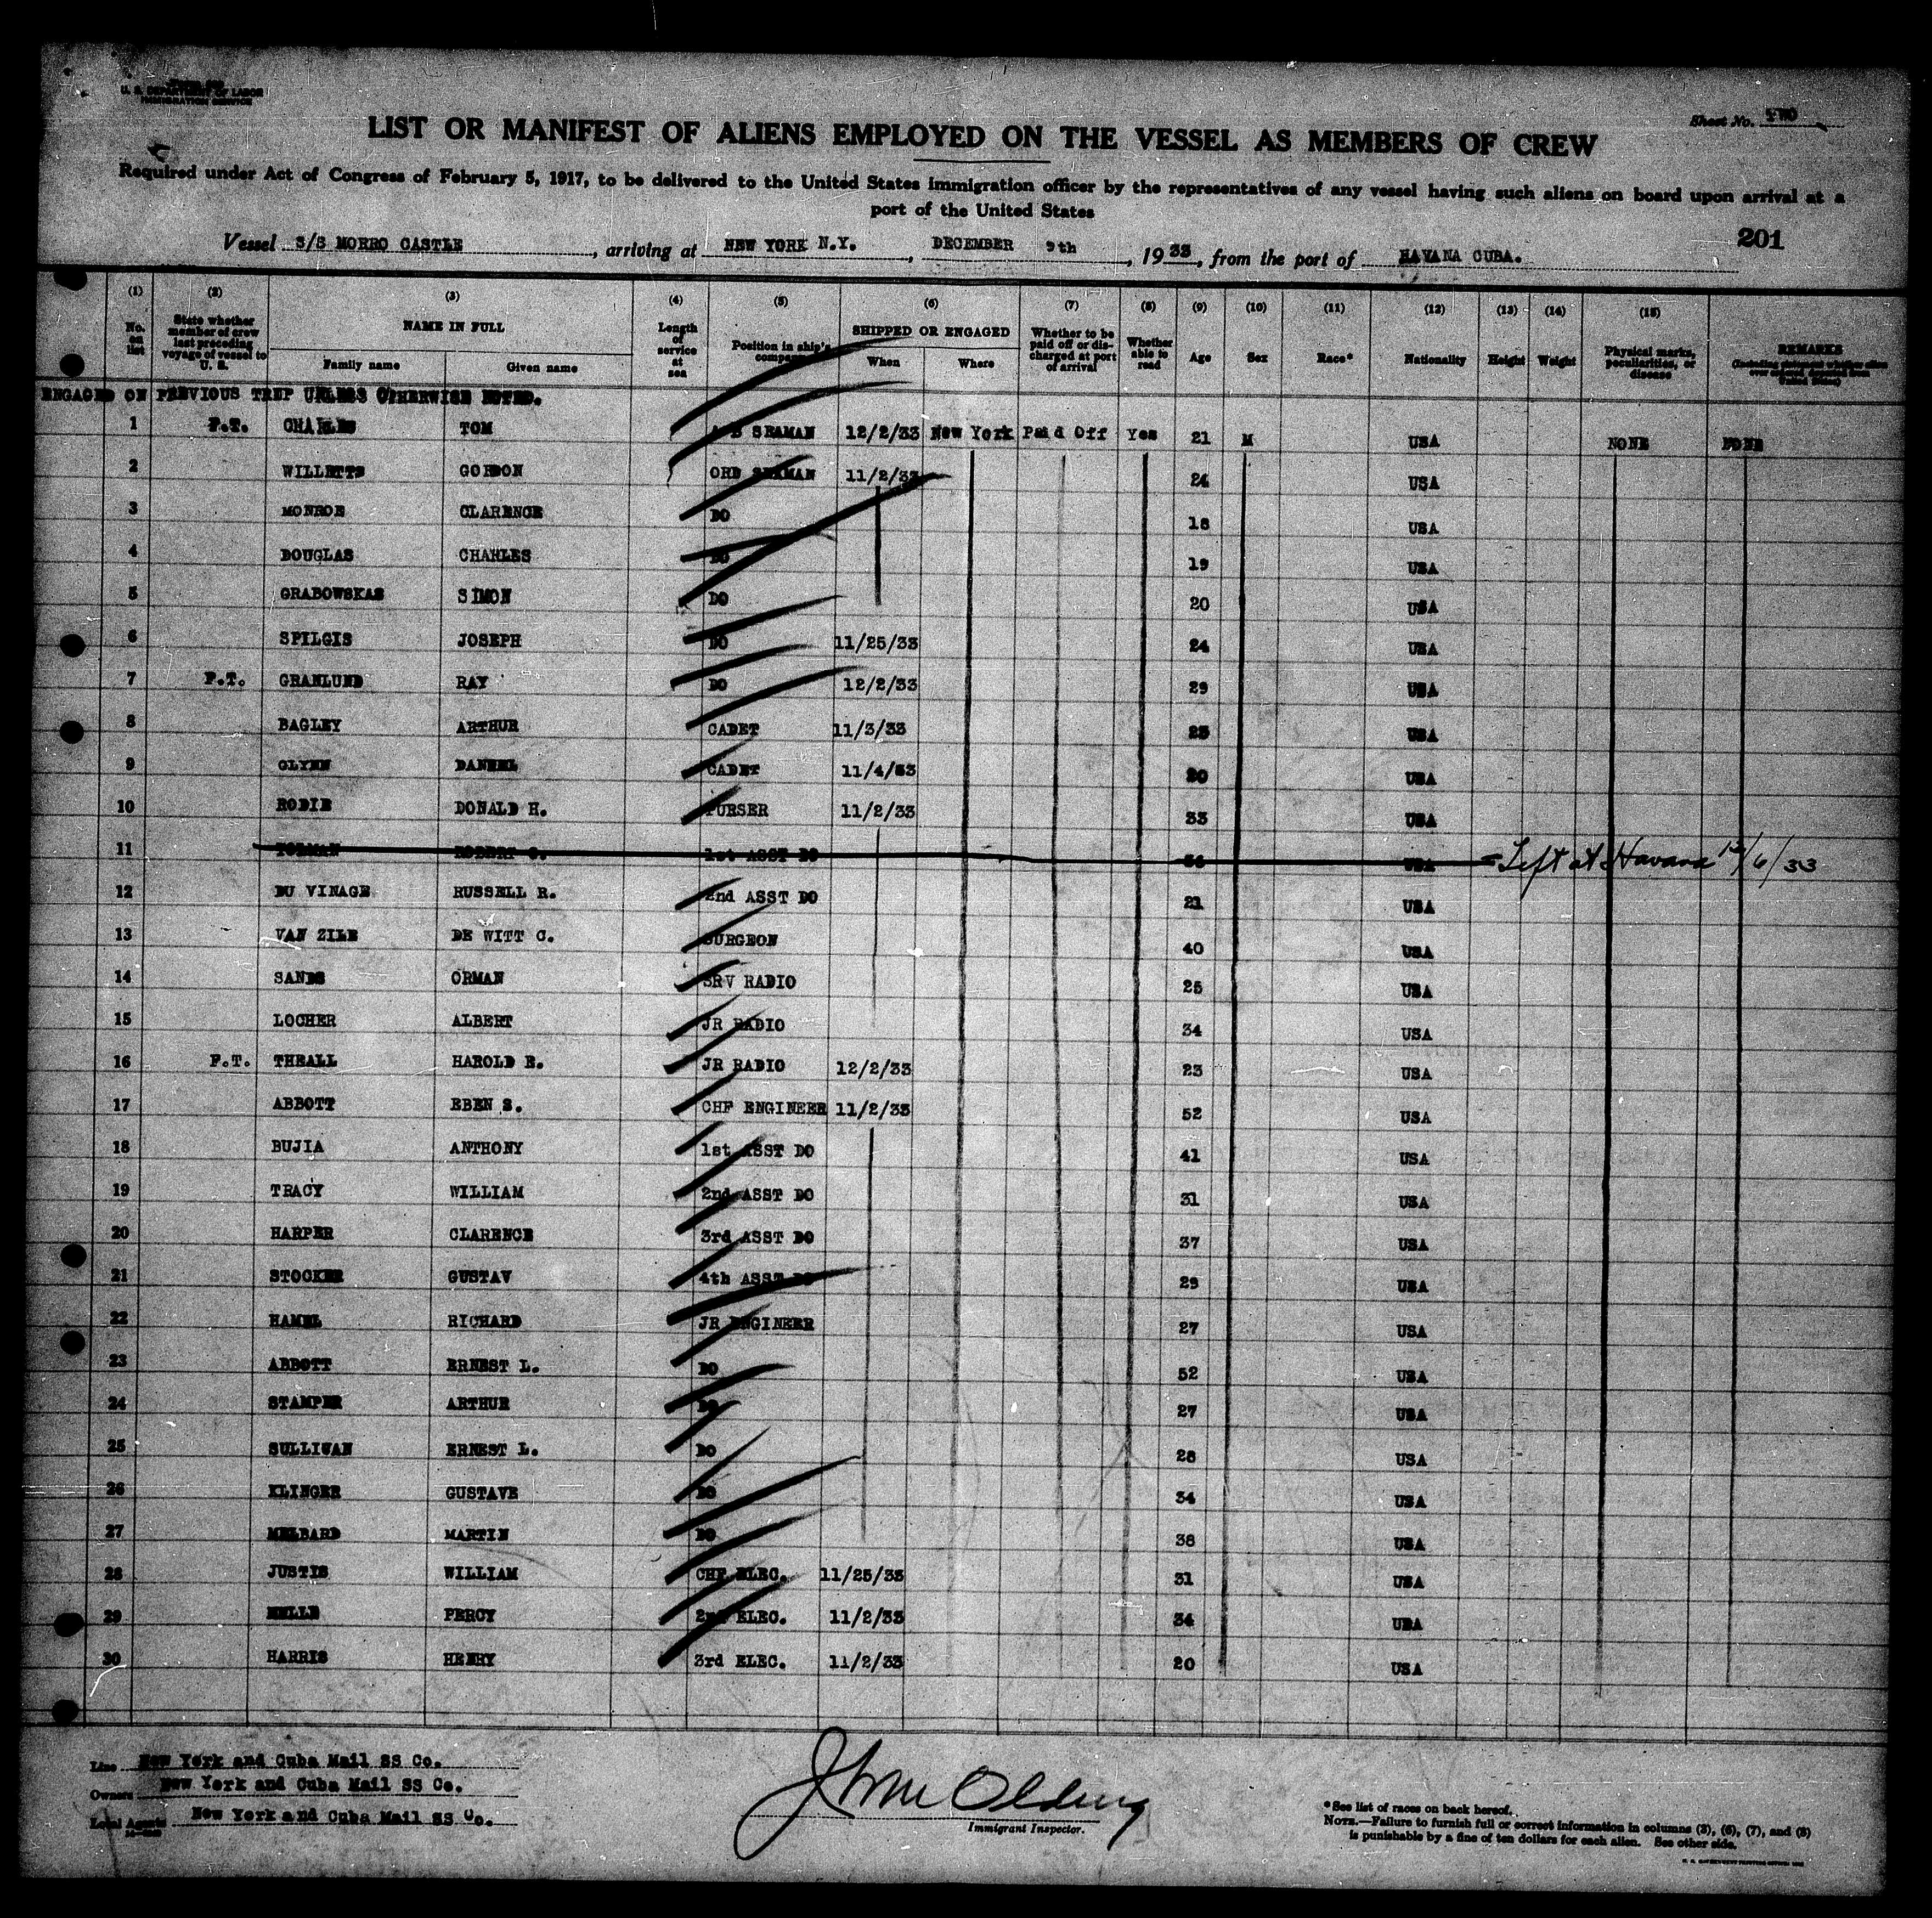 U. S. DEPARTMENT OF LABOR
IMMIGRATION SERVICE
Sheet No. TWO
LIST OR MANIFEST OF ALIENS EMPLOYED ON THE VESSEL AS MEMBERS OF CREW
Required under Act of Congress of February 5, 1917, to be delivered to the United States immigration officer by the representatives of any vessel having such aliens on board upon arrival at a
port of the United States
201
Vessel S/S MORRO CASTLE, arriving at NEW YORK N.Y., DECEMBER 9th, 1933, from the port of HAVANA CUBA.
(1) (2) (3) (4) (5) (6) (7) (8) (9) (10) (11) (12) (13) (14) (15)
No. on list State whether member of crew last preceding voyage of vessel to U. S. NAME IN FULL Family name Given name Length of service at sea Position in ship's company SHIPPED OR ENGAGED When Where Whether to be paid off or discharged at port of arrival Whether able to read Age Sex Race* Nationality Height Weight Physical marks, peculiarities, or disease REMARKS
ENGAGED ON PREVIOUS TRIP UNLESS OTHERWISE NOTED.
1 F.T. CHARLES TOM A B SEAMAN 12/2/33 New York Paid Off Yes 21 M USA NONE NONE
2 WILLETTS GORDON ORD SEAMAN 11/2/33 24 USA
3 MONROE CLARENCE DO 18 USA
4 DOUGLAS CHARLES DO 19 USA
5 GRABOWSKAS SIMON DO 20 USA
6 SPILGIS JOSEPH DO 11/25/33 24 USA
7 F.T. GRANLUND RAY DO 12/2/33 29 USA
8 BAGLEY ARTHUR CADET 11/3/33 25 USA
9 GLYNN DANIEL CADET 11/4/33 20 USA
10 RODIE DONALD H. PURSER 11/2/33 33 USA
11 ROBERT 1st ASST DO USA Left at Havana 12/6/33
12 DU VINAGE RUSSELL R. 2nd ASST DO 21 USA
13 VAN ZILE DE WITT C. SURGEON 40 USA
14 SANDS ORMAN SRV RADIO 25 USA
15 LOCHER ALBERT JR RADIO 34 USA
16 F.T. THRALL HAROLD E. JR RADIO 12/2/33 23 USA
17 ABBOTT EBEN S. CHF ENGINEER 11/2/33 52 USA
18 BUJIA ANTHONY 1st ASST DO 41 USA
19 TRACY WILLIAM 2nd ASST DO 31 USA
20 HARPER CLARENCE 3rd ASST DO 37 USA
21 STOCKER GUSTAV 4th ASST DO 29 USA
22 HAMEL RICHARD JR ENGINEER 27 USA
23 ABBOTT ERNEST L. DO 52 USA
24 STAMPER ARTHUR DO 27 USA
25 SULLIVAN ERNEST L. DO 28 USA
26 KLINGER GUSTAVE DO 34 USA
27 MELBARD MARTIN DO 38 USA
28 JUSTIS WILLIAM CHF ELEC. 11/25/33 31 USA
29 PERCY 2nd ELEC. 11/2/33 34 USA
30 HARRIS HENRY 3rd ELEC. 11/2/33 20 USA
Line New York and Cuba Mail SS Co.
Owners New York and Cuba Mail SS Co.
Local Agents New York and Cuba Mail SS Co.
Immigrant Inspector.
*See list of races on back hereof.
NOTE.—Failure to furnish full or correct information in columns (3), (6), (7), and (8)
is punishable by a fine of ten dollars for each alien. See other side.